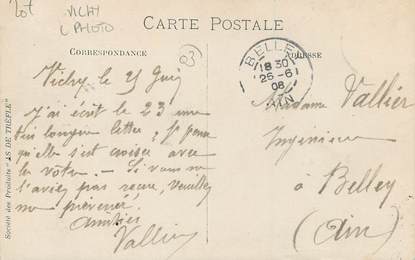 lot
VICHY
CPHOTO
CARTE POSTALE
CORRESPONDANCE
ADRESSE
(23)
BELLEY
18 30
25-6
08
AIN
Vichy le 25 Juin
J'ai écrit le 23 une
très longue lettre, Je pense
qu'elle s'est croisée avec
la vôtre. - Si vous ne
l'aviez pas reçue, veuillez
me prévenir.
Amitiés
Vallier
Madame Vallier
Ingénieur
à Belley
(Ain)
Société des Produits "AS DE TRÈFLE"